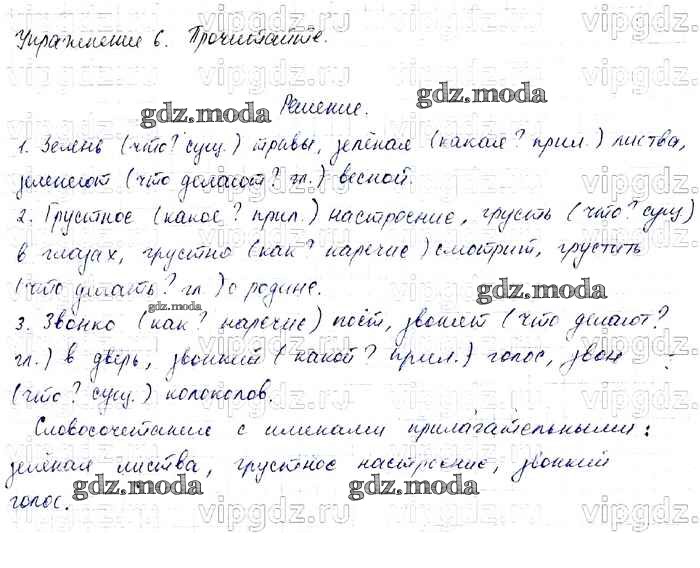 Упражнение 6. Прочитайте.
Решение.
1. Зелень (что? сущ.) травы, зелёная (какая? прил.) листва,
зеленеют (что делают? гл.) весной.
2. Грустное (какое? прил.) настроение, грусть (что? сущ)
в глазах, грустно (как? наречие) смотрит, грустить
(что делать? гл.) о родине.
3. Звонко (как? наречие) поёт, звонят (что делают?
гл.) в дверь, звонкий (какой? прил.) голос, звон
(что? сущ.) колоколов.
Словосочетание с именами прилагательными:
зелёная листва, грустное настроение, звонкий
голос.
gdz.moda
gdz.moda
gdz.moda
gdz.moda
gdz.moda
gdz.moda
gdz.moda
vipgdz.ru
vipgdz.ru
vipgdz.ru